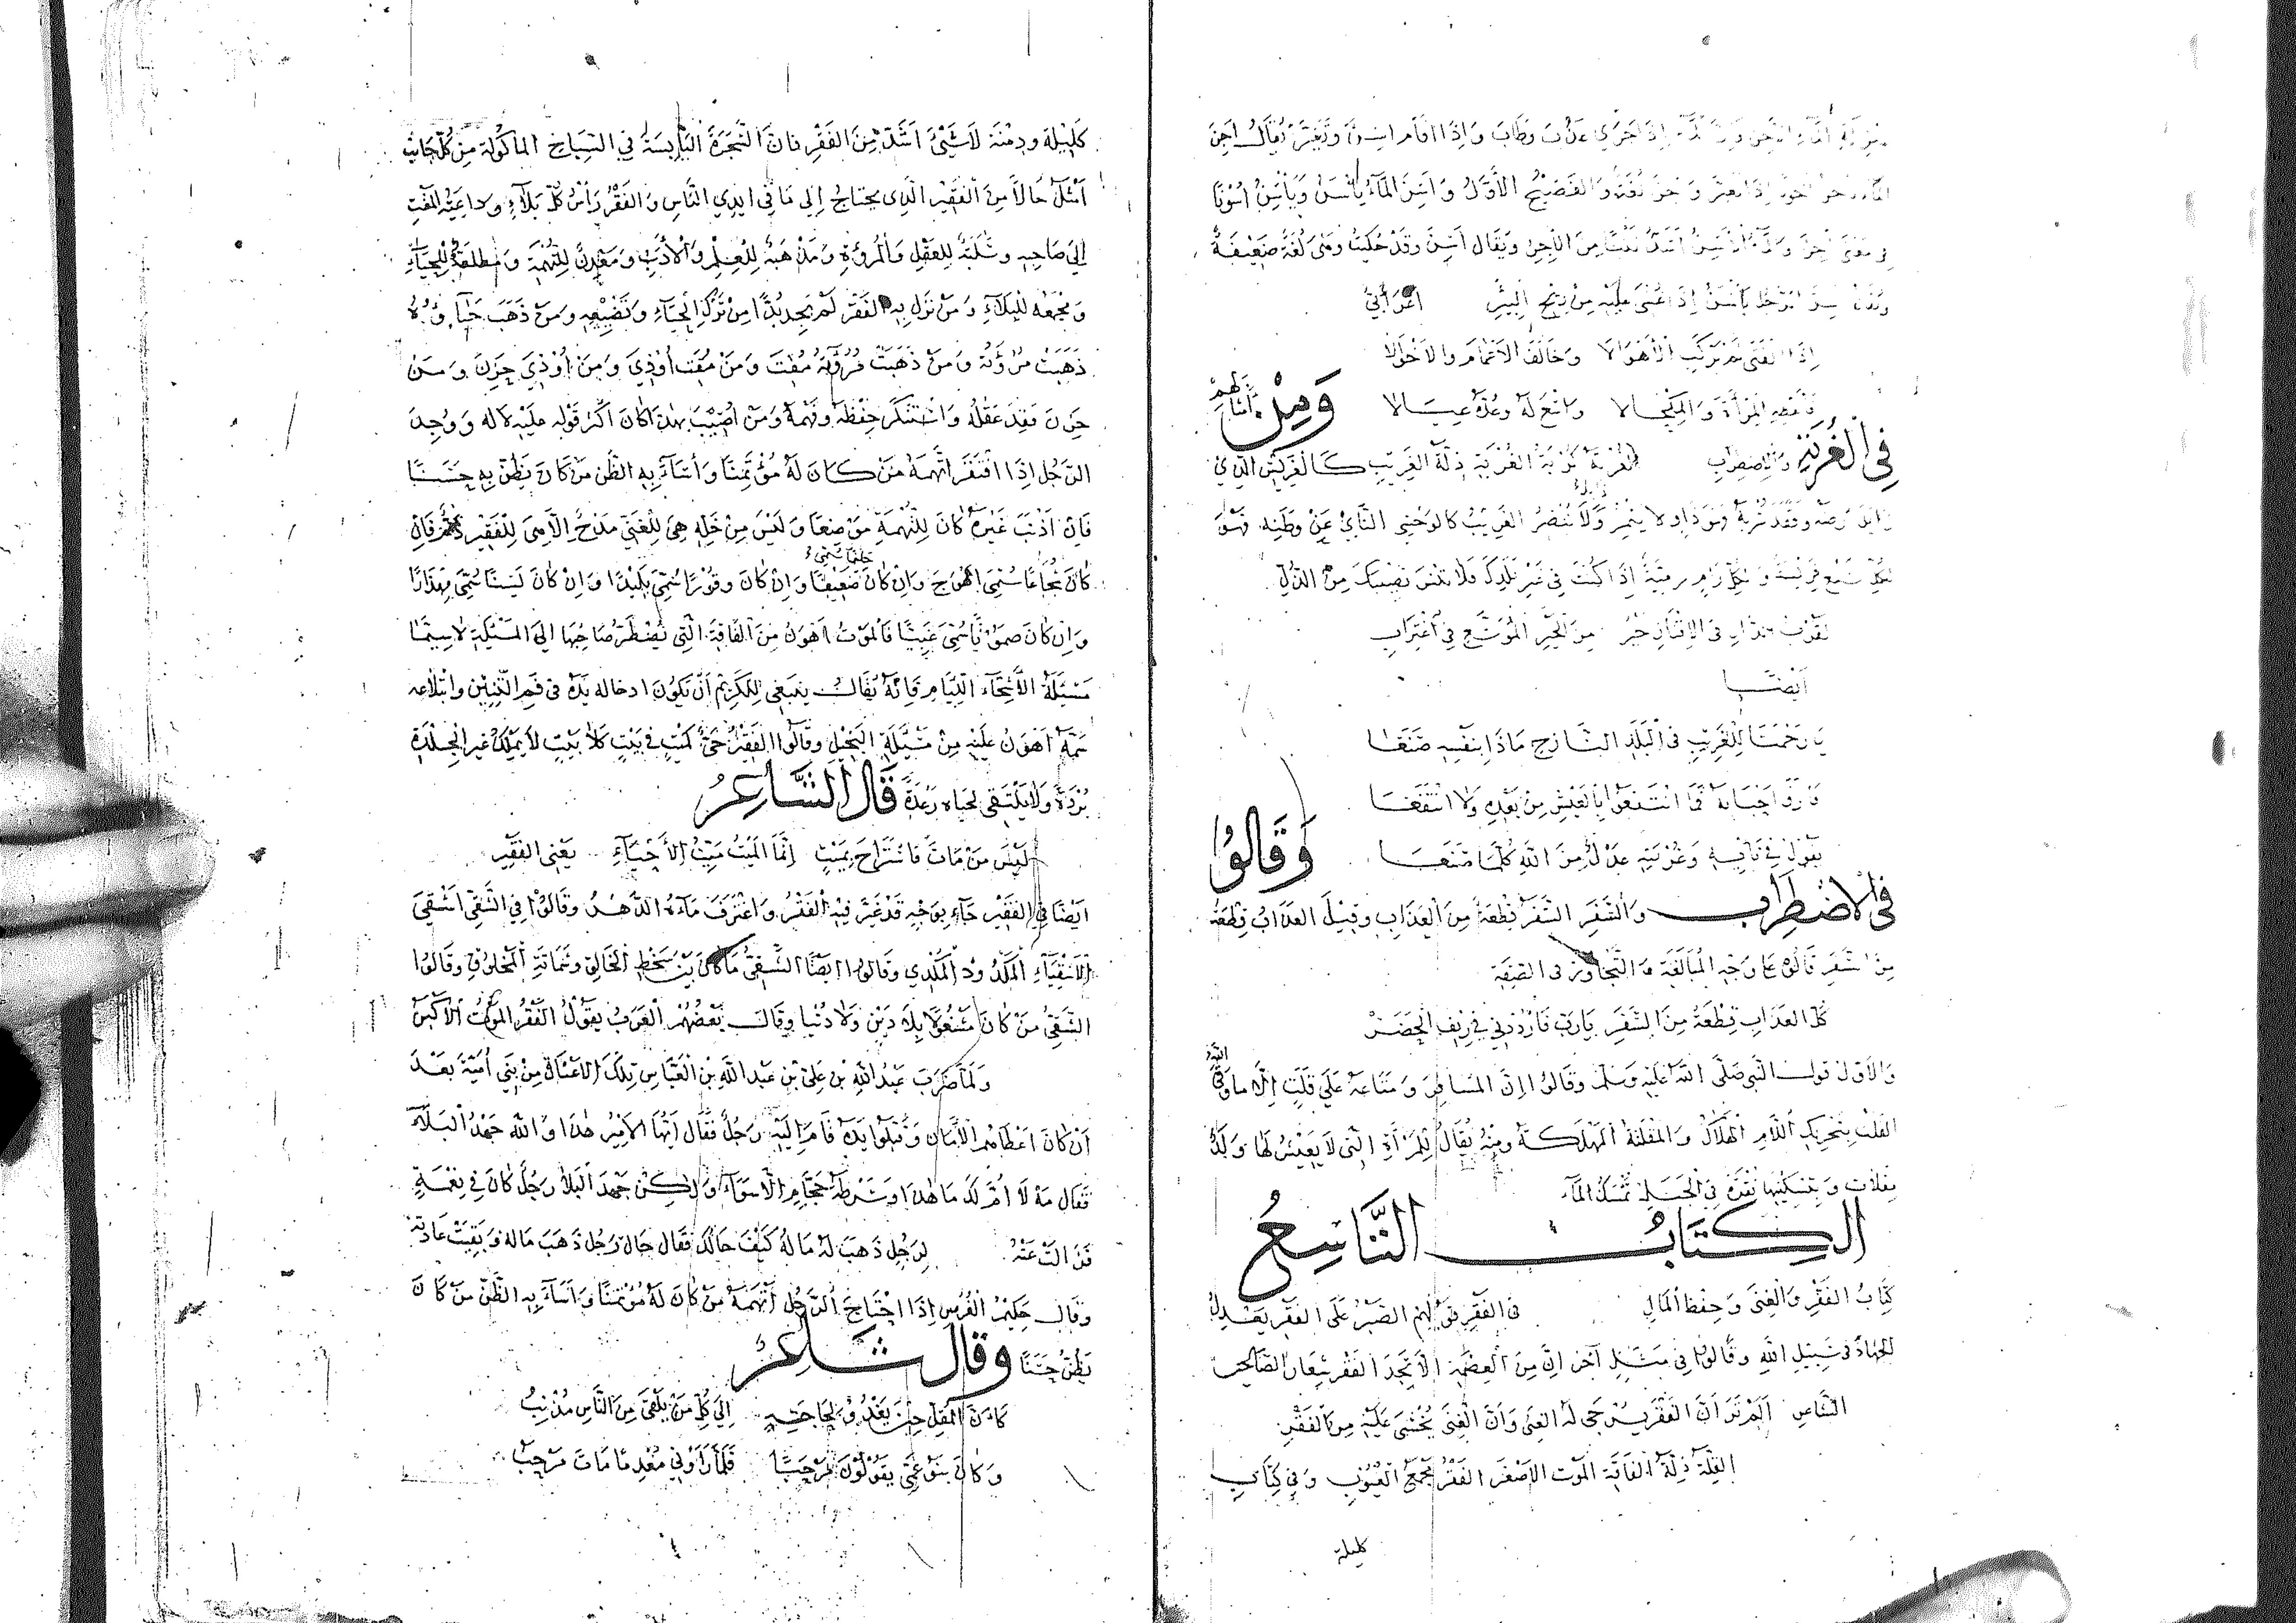 بمنزلة الماء الآجن إذا جرى عذب وطاب وإذا أقام أنتن وتغير يقال أجن
الماء إذا تغير لغة والفصيح الأول وأسن الماء يأسن ويأسن أسونا
في معنى أجن أشد نتنا من الآجن ويقال أسن وقد حكيت وهي لغة ضعيفة
الرجل يأسن إذا غشي عليه من ريح البئر أعرابي
إذا الفتى لم يركب الأهوالا وخالف الأعمام والأخوالا
فأعطه المرآة والمكحالا واسع له وعده عيالا
ومن أمثالهم
في الغربة والاضطراب الغربة كربة الغربة ذلة الغريب كالغرس الذي
زايل أرضه وفقد شربه فهو ذاو لا يثمر ولا ينضر الغريب كالوحشي النائي عن وطنه فهو
لكل سبع فريسة ولكل رام رمية إذا كنت في غير بلدك فلا تنس نصيبك من الذل
لقرب الدار في الإقتار خير من الخير الموسع في اغتراب
أيضا
يا رحمتا للغريب في البلد النازح ماذا بنفسه صنعا
فارق أحبابه فما انتفعوا بالعيش من بعده ولا انتفعا
يقول في نأيه وغربته عدل من الله كلما صنعا
وقالوا
في الاضطراب والسفر السفر قطعة من العذاب وقيل العذاب قطعة
من السفر قالوه على وجه المبالغة والتجاوز في الصفة
كل العذاب قطعة من السفر يا رب فارددني في ريف الحضر
والأول قول النبي صلى الله عليه وسلم وقالوا إن المسافر ومتاعه على قلت إلا ما وقى الله
القلت بتحريك اللام الهلاك والمقلتة المهلكة ومنه يقال للمرأة التي لا يعيش لها ولد
مقلات وبتسكينها نقرة في الجبل تمسك الماء
الكتاب التاسع
كتاب الفقر والغنى وحفظ المال في الفقر قولهم الصبر على الفقر يعدل
الجهاد في سبيل الله وقالوا في مثل آخر إن من العصمة ألا تجد الفقر شعار الصالحين
الشاعر ألم تر أن الفقر يرجى له الغنى وأن الغنى يخشى عليه من الفقر
القلة ذلة الفاقة الموت الأصغر الفقر مجمع العيوب وفي كتاب
كليلة
كليلة ودمنة لا شيئ أشد من الفقر فان الشجرة اليابسة في السباخ المأكولة من كل جانب
أمثل حالا من الفقير الذي يحتاج إلى ما في أيدي الناس والفقر رأس كل بلاء وداعية المقت
إلى صاحبه وسلبة للعقل والمروة ومذهبة للعلم والأدب ومعدن للتهمة ومطلعة للحياء
ومجمعة للبلاء ومن نزل به الفقر لم يجد بدا من ترك الحياء وتضييعه ومن ذهب حياؤه
ذهبت مروته ومن ذهبت مروته مقت ومن مقت أوذي ومن أوذي حزن ومن
حزن فقد عقله واستنكر حفظه وفهمه ومن أصيب بهذا كان أكثر قوله عليه لا له ووجد
الرجل إذا افتقر اتهمه من كان له مؤتمنا وأساء به الظن من كان يظن به حسنا
فان أذنب غيره كان للتهمة موضعا وليس من خلة هي للغني مدح إلا هي للفقير ذم فان
كان شجاعا سمي أهوج وان كان حليما سمي ضعيفا وان كان وقورا سمي بليدا وان كان لسنا سمي مهذارا
وان كان صموتا سمي عييا فالموت أهون من الفاقة التي تضطر صاحبها إلى المسئلة لا سيما
مسئلة الأشحاء اللئام فانه يقال ينبغي للكريم أن يكون ادخاله يده في فم التنين وابتلاعه
سمه أهون عليه من مسئلة البخيل وقالوا الفقير حي كميت في بيت كلا بيت لا يملك غير الجلدة
بردة ولا يلتقي لحياه رعدة قال الشاعر
ليس من مات فاستراح بميت إنما الميت ميت الأحياء يعني الفقير
أيضا في الفقير جاء بوجه قد غير فيه الفقر واغترف ماءه الدهر وقالوا في الشقي أشقى
الأشقياء وقالوا أيضا الشقي ما كان بين سخط الخالق وشماتة المخلوق وقالوا
الشقي من كان مشغولا بلا دين ولا دنيا وقال بعضهم العرب يقول الفقر الموت الأكبر
ولما ضرب عبد الله بن علي بن عبد الله بن العباس تلك الأعناق من بني أمية بعد
أن كان أعطاهم الأمان وقبلوا يده قام إليه رجل فقال أيها الأمير هذا والله جهد البلاء
فقال مه لا أم لك ما هذا وشرطة حجام إلا سواء ولكن جهد البلا رجل كان في نعمة
فزالت عنه لرجل ذهب له ماله كيف حالك فقال حال رجل ذهب ماله وبقيت عادته
وقال حكيم الفرس إذا احتاج الرجل اتهمه من كان له مؤتمنا وأساء به الظن من كان
يظن حسنا وقال شاعر
كان المقل حين يغدو لحاجة إلى كل من يلقى من الناس مذنب
وكان بنو عمي يقولون مرحبا فلما رأوني معدما مات مرحب